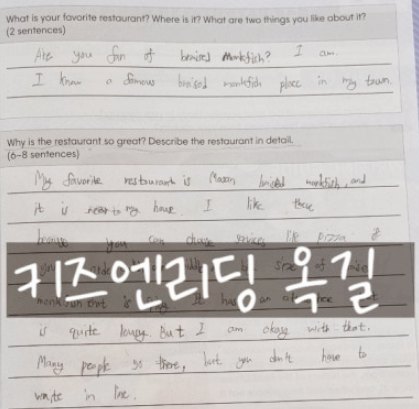 What is your favorite restaurant? Where is it? What are two things you like about it?
(2 sentences)
Are you fan of braised monkfish? I am.
I know a famous braised monkfish place in my town.
Why is the restaurant so great? Describe the restaurant in detail.
(6-8 sentences)
My favorite restaurant is Masan braised monkfish, and
it is near to my house. I like
because you can choose services like pizza
키즈엔리딩 옥길
is quite lousy But I am okay with that.
Many people go there, but you don't have to
waite in line.